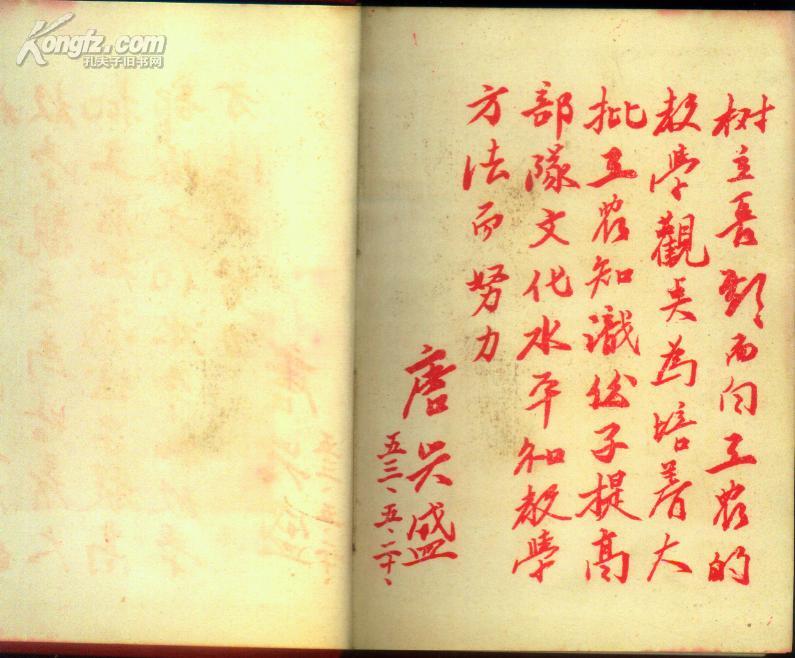 Kongfz.com
孔夫子旧书网
树立面向工农的
教學觀点為培养大
批工农知識份子提高
部隊文化水平和教學
方法而努力
唐兴盛
五三、五、二十、